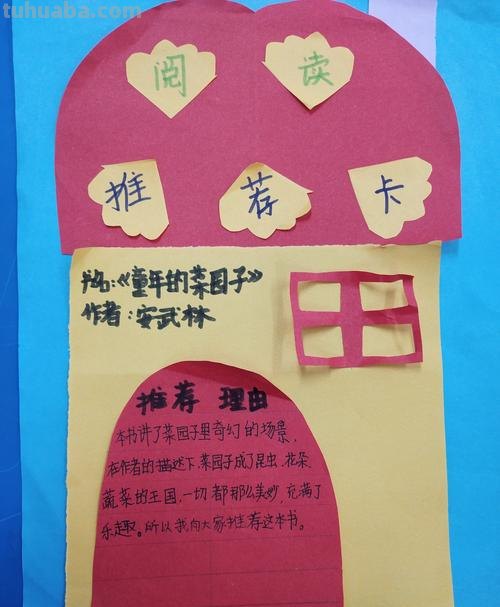 tuhuaba.com
阅 读
推 荐 卡
书名:《童年的菜园子》
作者:安武林
推荐 理由
本书讲了菜园子里奇幻的场景,
在作者的描述下,菜园子成了昆虫、花朵、
蔬菜的王国,一切都那么美妙,充满了
乐趣。所以我向大家推荐这本书。